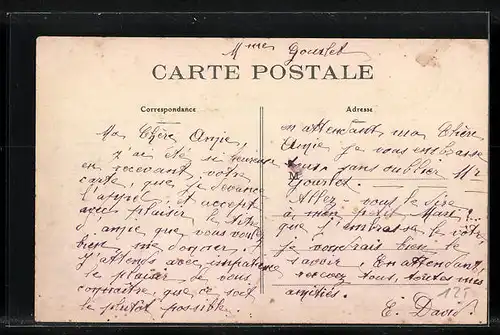 Mmes Gourlet
CARTE POSTALE
Correspondance
Ma Chère Amie,
J'ai été si heureuse
en recevant votre
carte, que je devance
l'appel, et accepte
avec plaisir le titre
d'amie que vous voulez
bien me donner.
J'attends avec impatience
le plaisir de vous
connaître, que ce soit
le plutôt possible.
Adresse
en attendant ma Chère
Amie je vous embrasse
tous, sans oublier Mr
M
Gourlet.
Allez vous le dire
à mon petit Mari!...
que j'embrasse le vôtre,
je voudrais bien le
savoir. En attendant,
recevez tous, toutes mes
amitiés.
E. David.